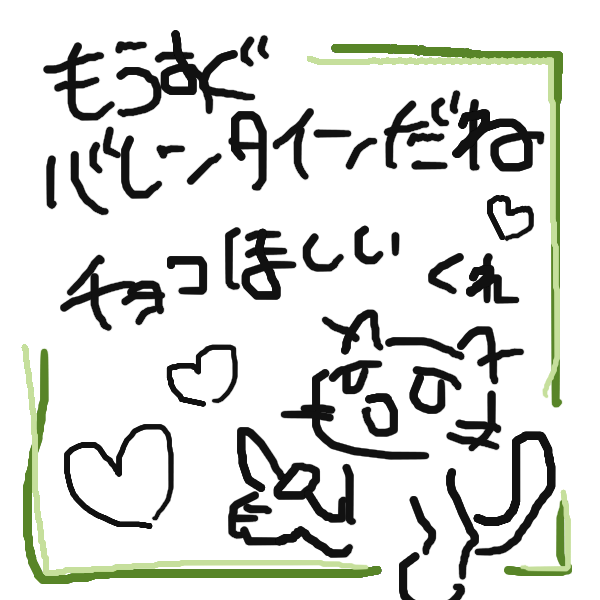 もうすぐ
バレンタインだね
チョコほしい
くれ